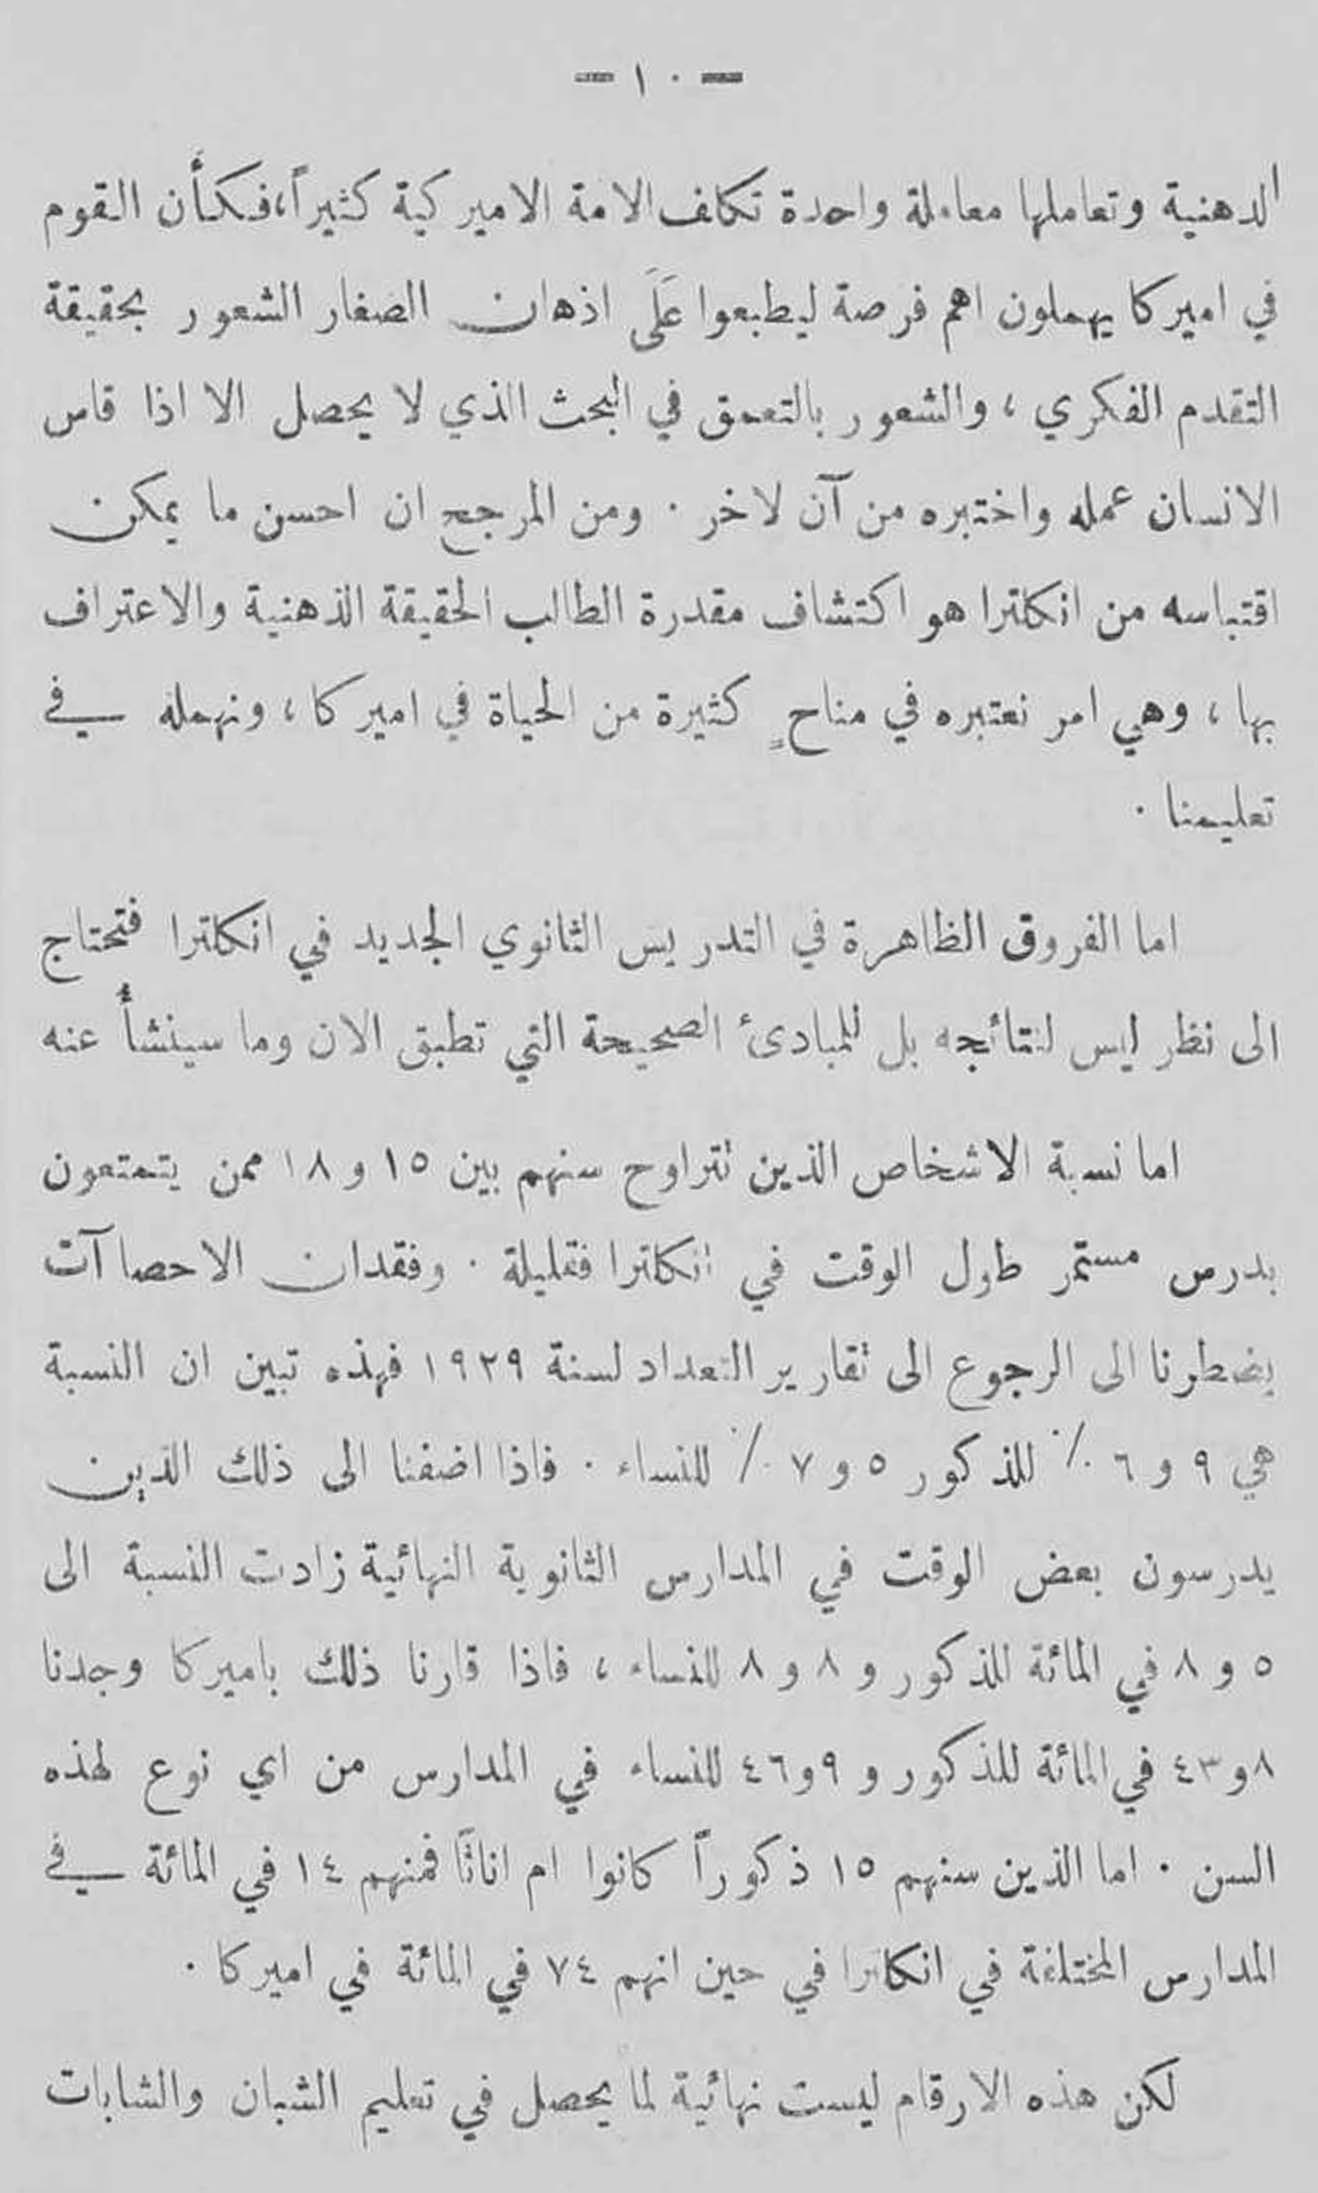 — ١٠ —
الدهنية وتعاملها معاملة واحدة تكلف الامة الاميركية كثيراً، فكأن القوم
في اميركا يهملون اهم فرصة ليطبعوا عَلَى اذهان الصغار الشعور بحقيقة
التقدم الفكري ، والشعور بالتعمق في البحث الذي لا يحصل الا اذا قاس
الانسان عمله واختبره من آن لاخر . ومن المرجح ان احسن ما يمكن
اقتباسه من انكلترا هو اكتشاف مقدرة الطالب الحقيقة الذهنية والاعتراف
بها ، وهي امر نعتبره في مناحٍ كثيرة من الحياة في اميركا ، ونهمله في
تعليمنا .
اما الفروق الظاهرة في التدريس الثانوي الجديد في انكلترا فتحتاج
الى نظر ليس لنتائجه بل للمبادئ الصحيحة التي تطبق الان وما سينشأ عنه
اما نسبة الاشخاص الذين تتراوح سنهم بين ١٥ و ١٨ ممن يتمتعون
بدرس مستمر طول الوقت في انكلترا فقليلة . وفقدان الاحصاآت
يضطرنا الى الرجوع الى تقارير التعداد لسنة ١٩٢٩ فهذه تبين ان النسبة
هي ٩ و ٦ ٪ للذكور ٥ و ٧ ٪ للنساء . فاذا اضفنا الى ذلك الذين
يدرسون بعض الوقت في المدارس الثانوية النهائية زادت النسبة الى
٥ و ٨ في المائة للذكور و ٨ و ٨ للنساء ، فاذا قارنا ذلك باميركا وجدنا
٨و٤٣ في المائة للذكور و ٩و٤٦ للنساء في المدارس من اي نوع لهذه
السن . اما الذين سنهم ١٥ ذكوراً كانوا ام اناثاً فمنهم ١٤ في المائة في
المدارس المختلفة في انكلترا في حين انهم ٧٤ في المائة في اميركا .
لكن هذه الارقام ليست نهائية لما يحصل في تعليم الشبان والشابات